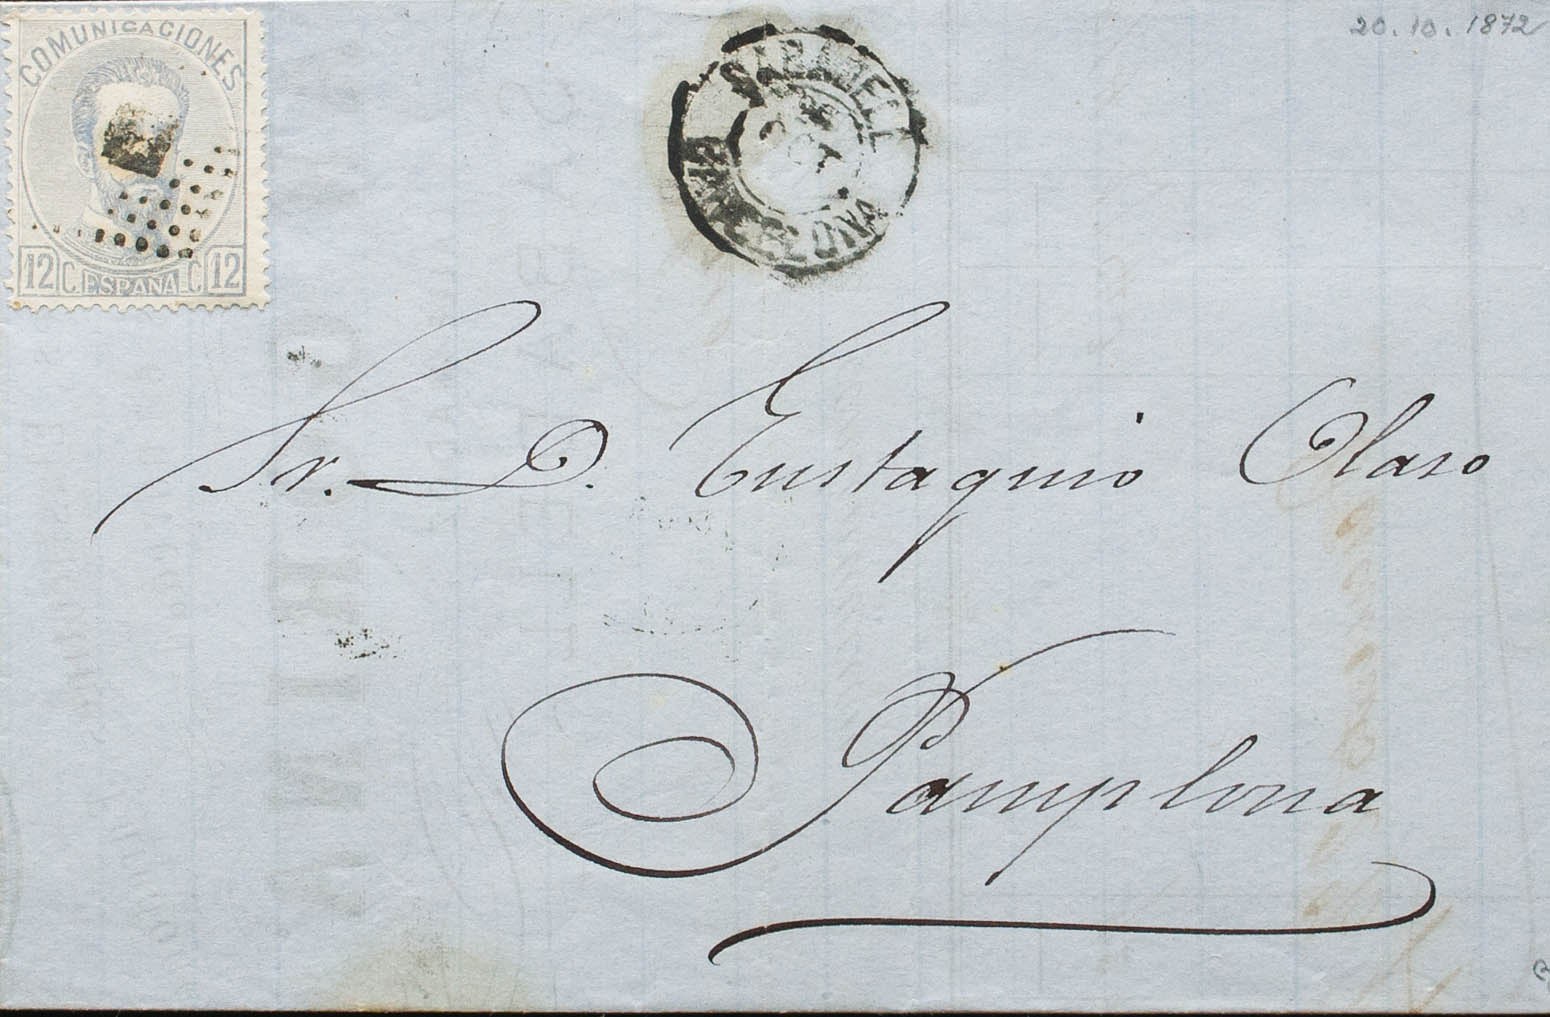 COMUNICACIONES
12 C ESPAÑA C 12
SABADELL
BARCELONA
20.10.1872
Sr. D. Eustaquio Olaso
Pamplona